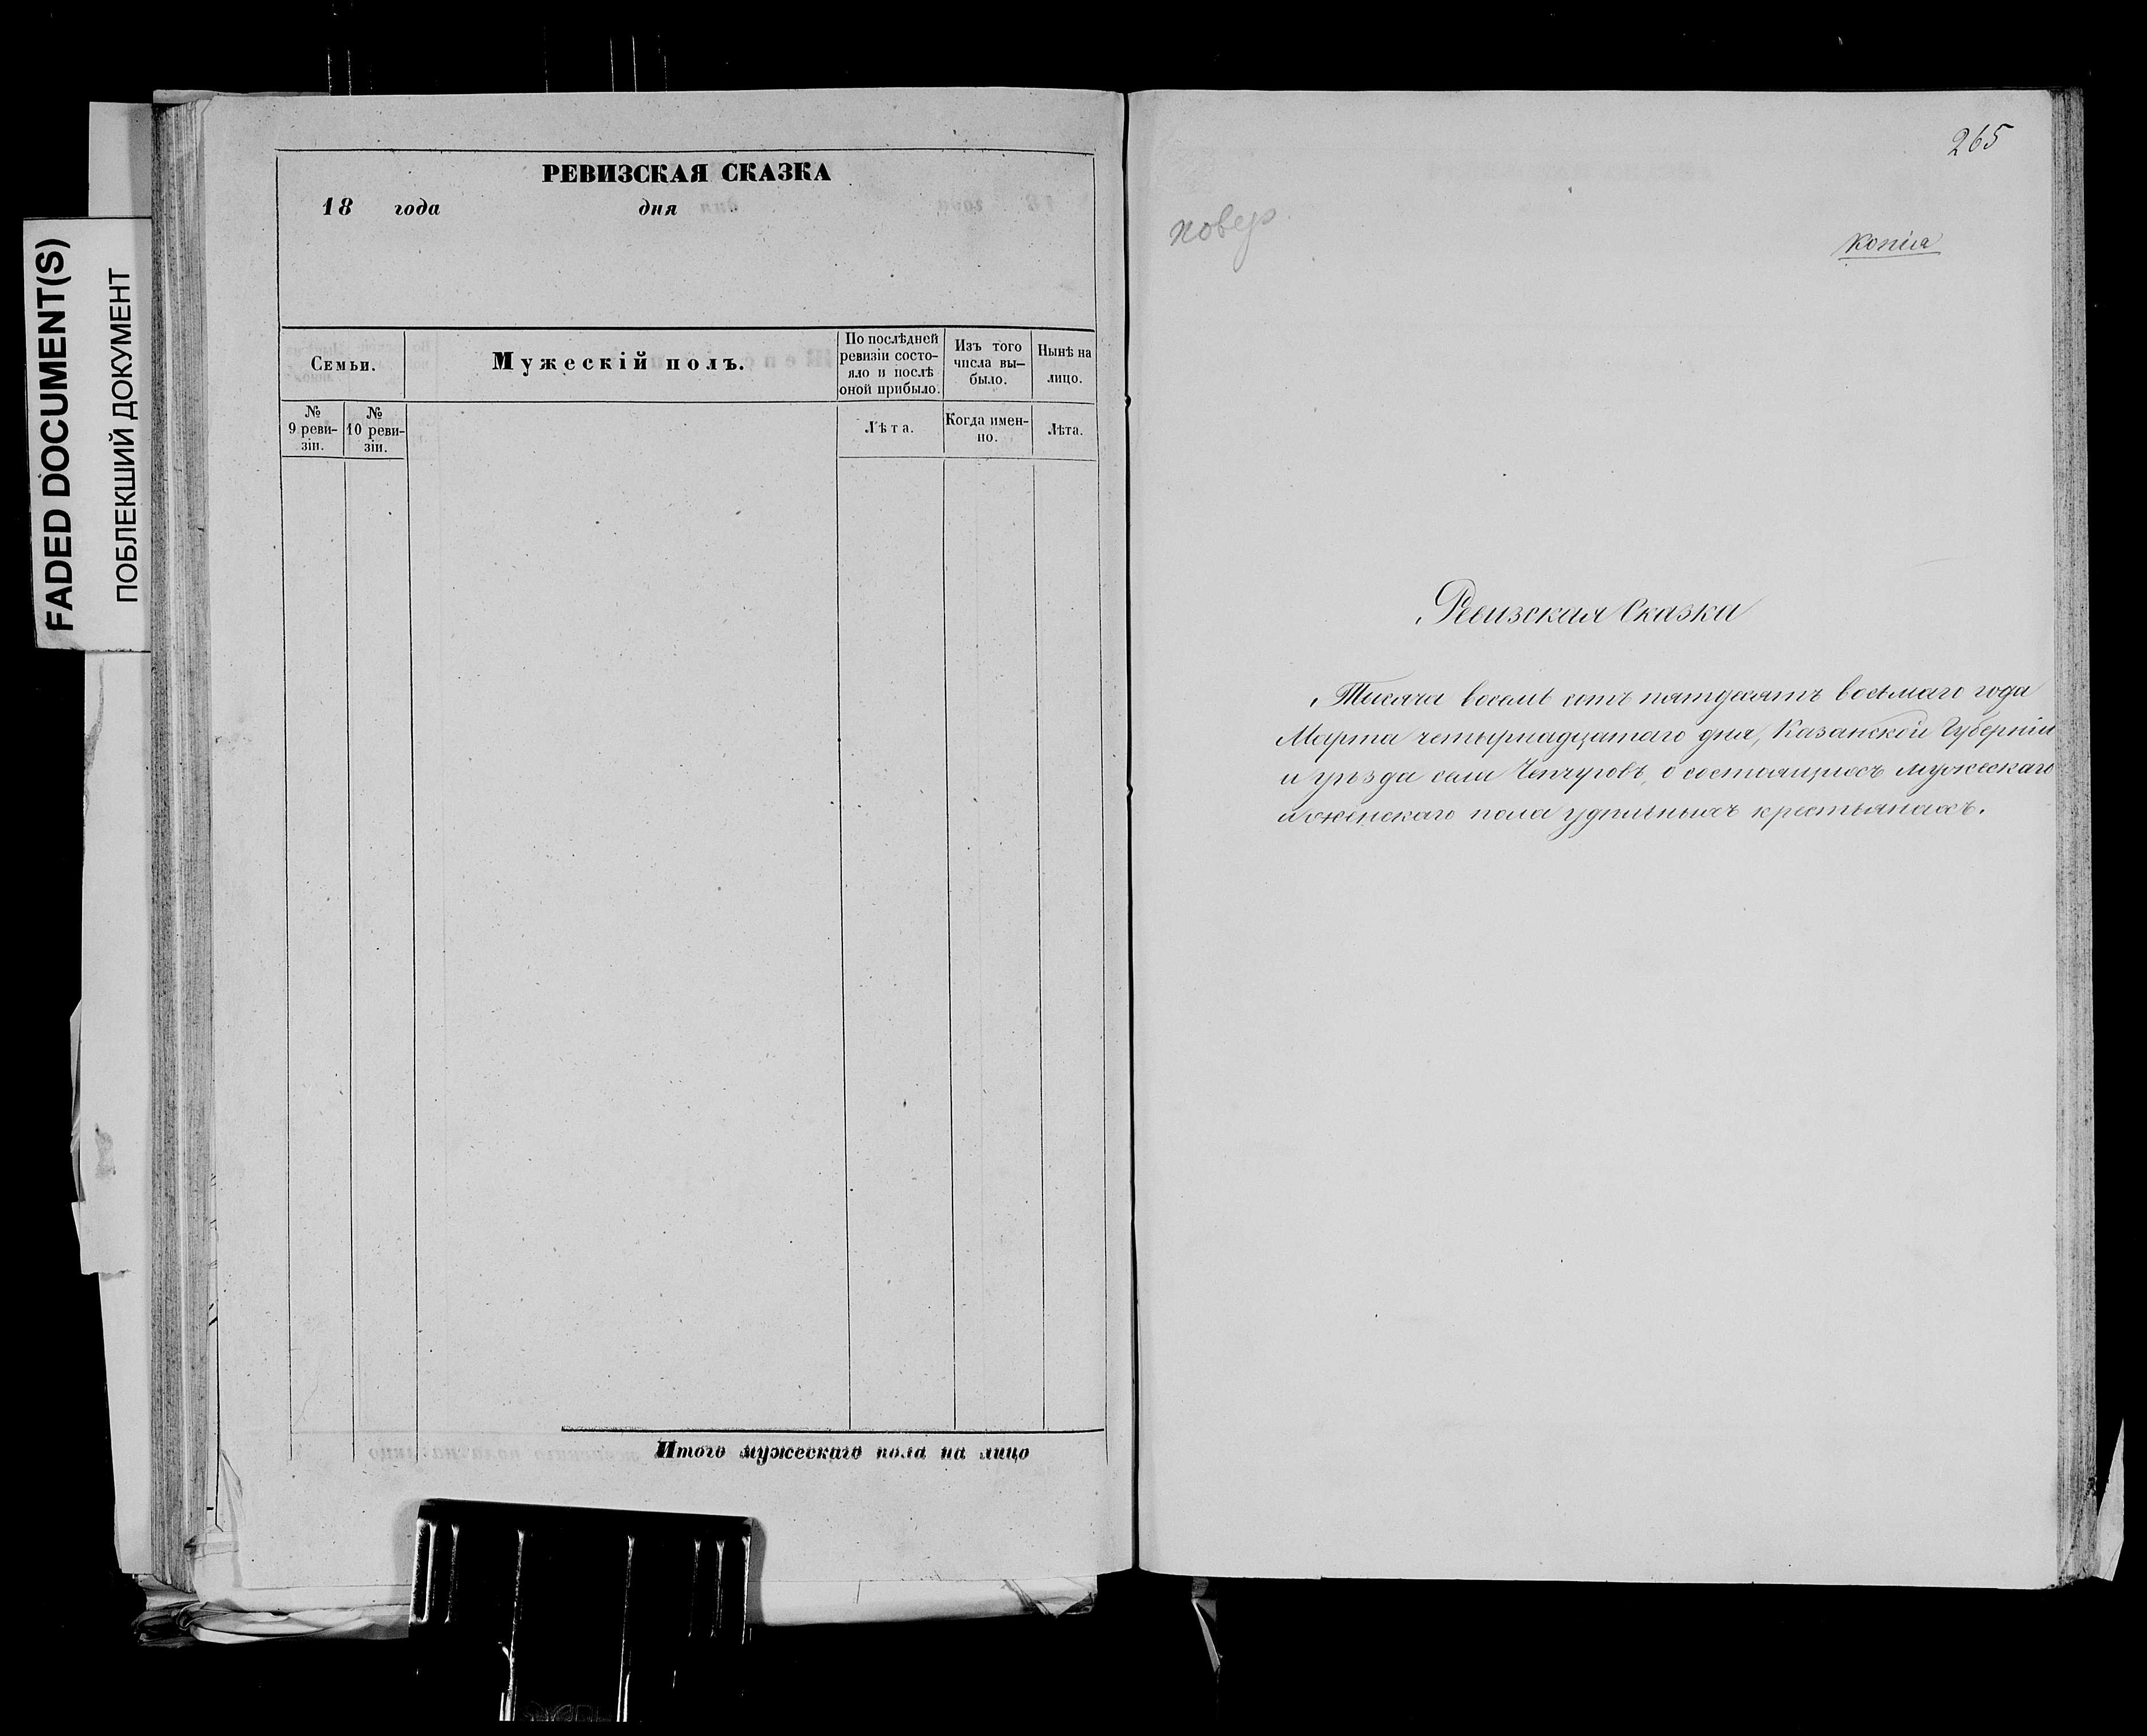 FADED DOCUMENT(S)
ПОБЛЕКШИЙ ДОКУМЕНТ
РЕВИЗСКАЯ СКАЗКА
18 года дня
Семьи.
Мужескій полъ.
По послѣдней
ревизіи состо-
яло и послѣ
оной прибыло.
Изъ того
числа вы-
было.
Нынѣ на
лицо.
№
9 реви-
зіи.
№
10 реви-
зіи.
Лѣта.
Когда имен-
но.
Лѣта.
Итого мужескаго пола на лицо
265
повер
Копія
Ревизская Сказка
Тысяча восемь сотъ пятьдесятъ восьмаго года
Марта четырнадцатаго дня, Казанской Губерніи
и уѣзда села Чепчуговъ, о состоящихъ мужескаго
и женскаго пола удѣльныхъ крестьянахъ.